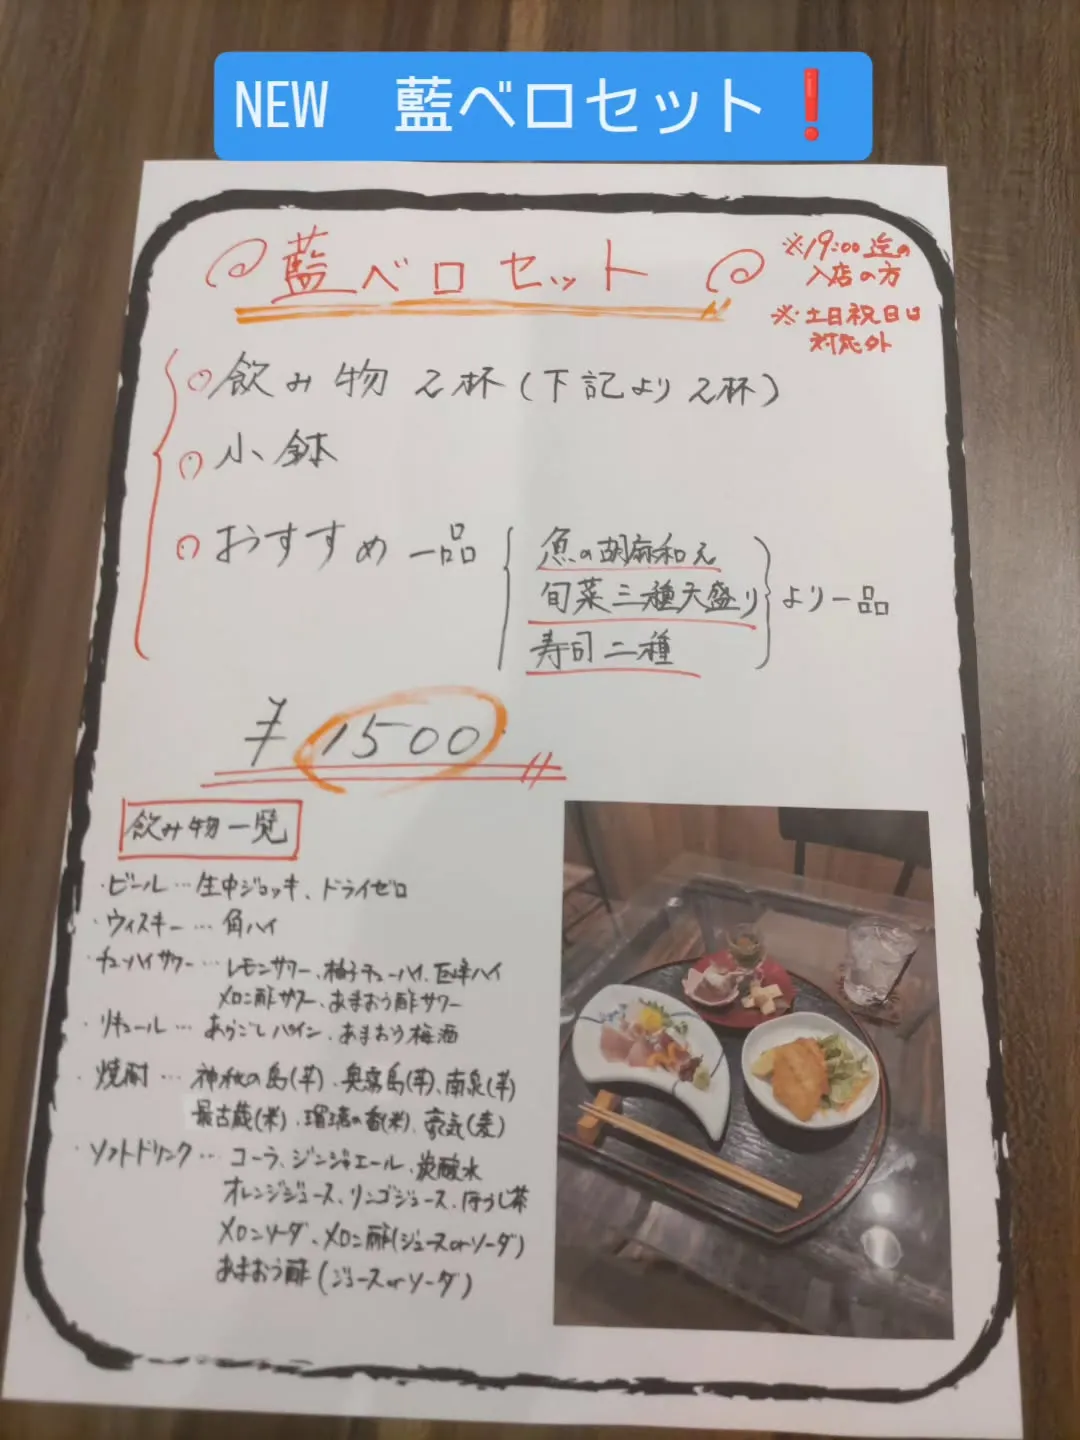 NEW 藍ベロセット❗
藍ベロセット
※19:00迄の
入店の方
※土日祝日は
対応外
飲み物 2杯(下記より2杯)
小鉢
おすすめ一品
魚の胡麻和え
旬菜三種天盛り
寿司二種
より一品
¥1500
飲み物一覧
・ビール…生中ジョッキ、ドライゼロ
・ウィスキー…角ハイ
・チューハイサワー…レモンサワー、柚子チューハイ、巨峰ハイ
メロン酢サワー、あまおう酢サワー
・リキュール…あらごしパイン、あまおう梅酒
・焼酎…神秘の島(芋)、奥霧島(芋)、南泉(芋)
最古蔵(米)、瑠璃の香(米)、豪気(麦)
・ソフトドリンク…コーラ、ジンジャエール、炭酸水
オレンジジュース、リンゴジュース、ほうじ茶
メロンソーダ、メロン酢(ジュースorソーダ)
あまおう酢(ジュースorソーダ)